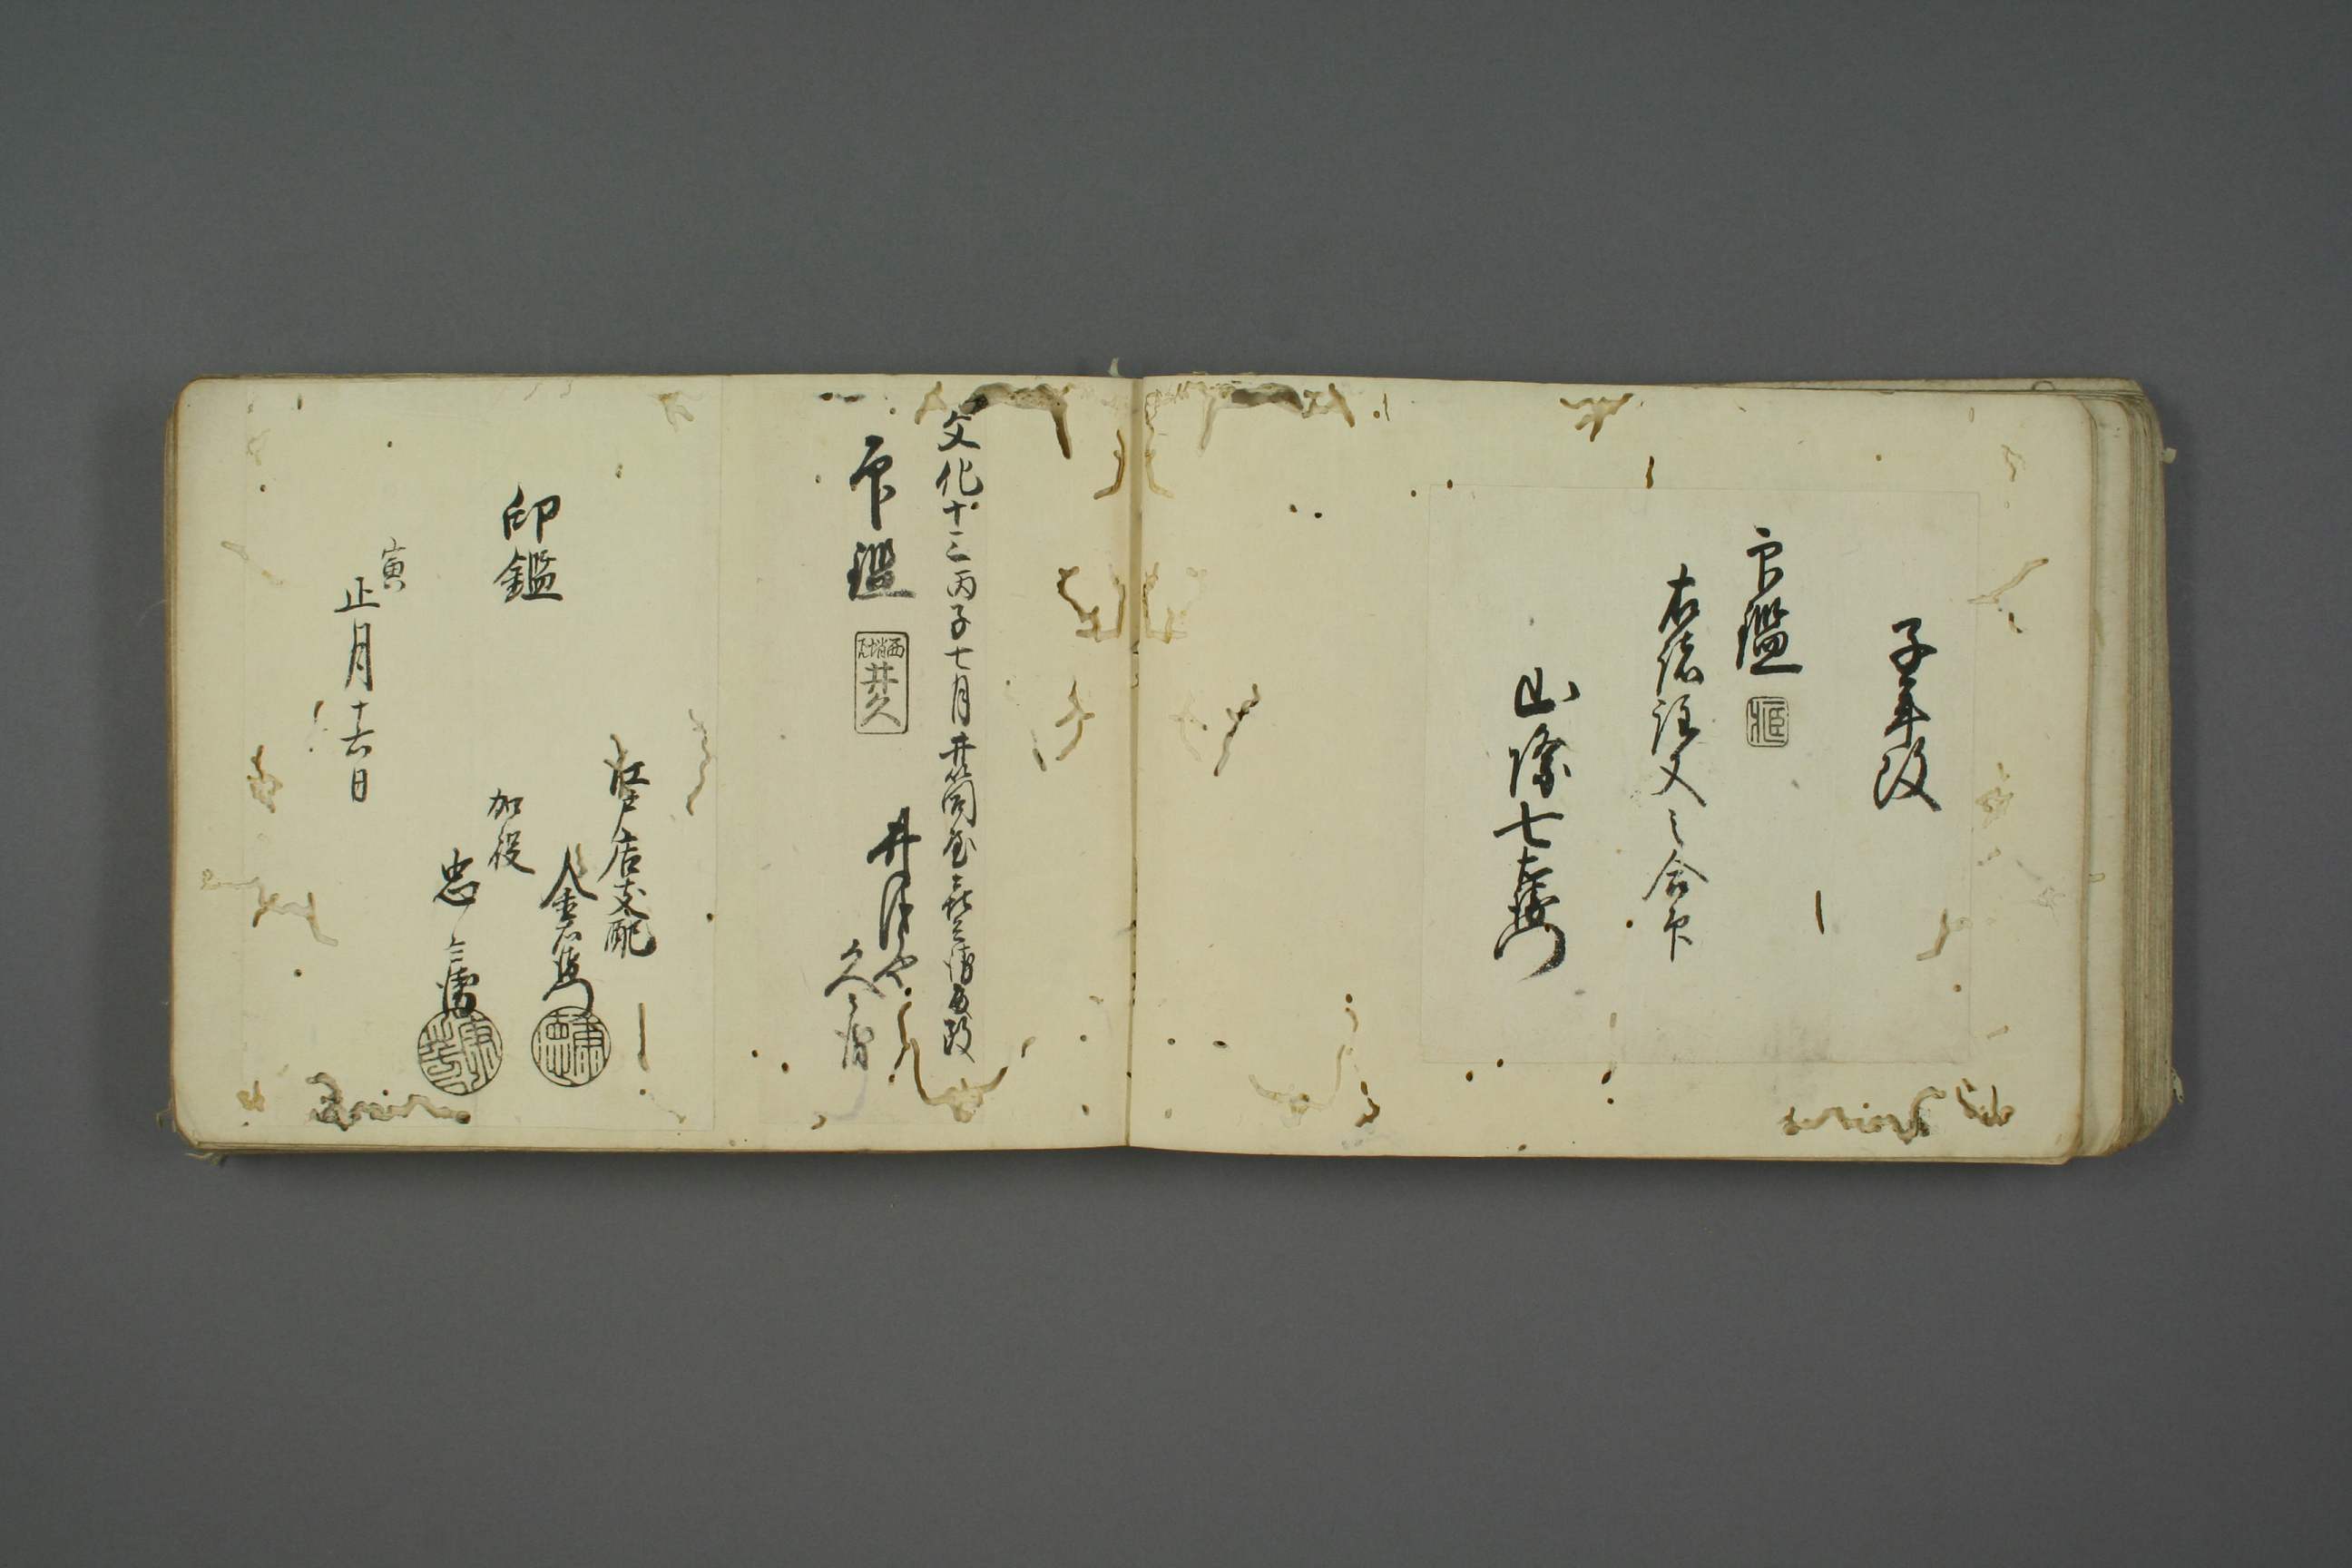 子年改
印鑑
右諸證文之合印
山際七左衛門
文化十三丙子七月 井筒屋
印鑑
井久
井筒や
久兵衛
江戸店支配
金右衛門
加役
忠三郎
印鑑
寅
正月十六日